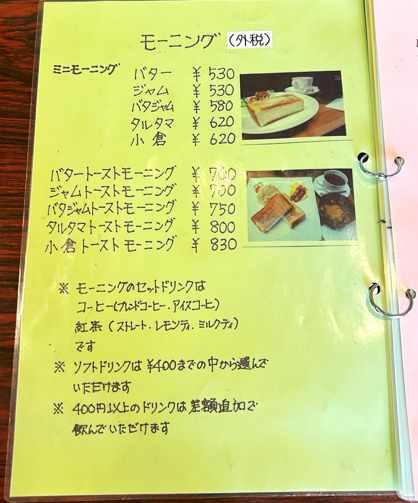 モーニング (外税)
ミニモーニング バター ¥530
ジャム ¥530
バタジャム ¥580
タルタマ ¥620
小倉 ¥620
バタートーストモーニング ¥700
ジャムトーストモーニング ¥700
バタジャムトーストモーニング ¥750
タルタマトーストモーニング ¥800
小倉トーストモーニング ¥830
※ モーニングのセットドリンクは
コーヒー(ブレンドコーヒー.アイスコーヒ)
紅茶(ストレート.レモンティ.ミルクティ)
です
※ ソフトドリンクは¥400までの中から選んで
いただけます
※ 400円以上のドリンクは差額追加で
飲んでいただけます